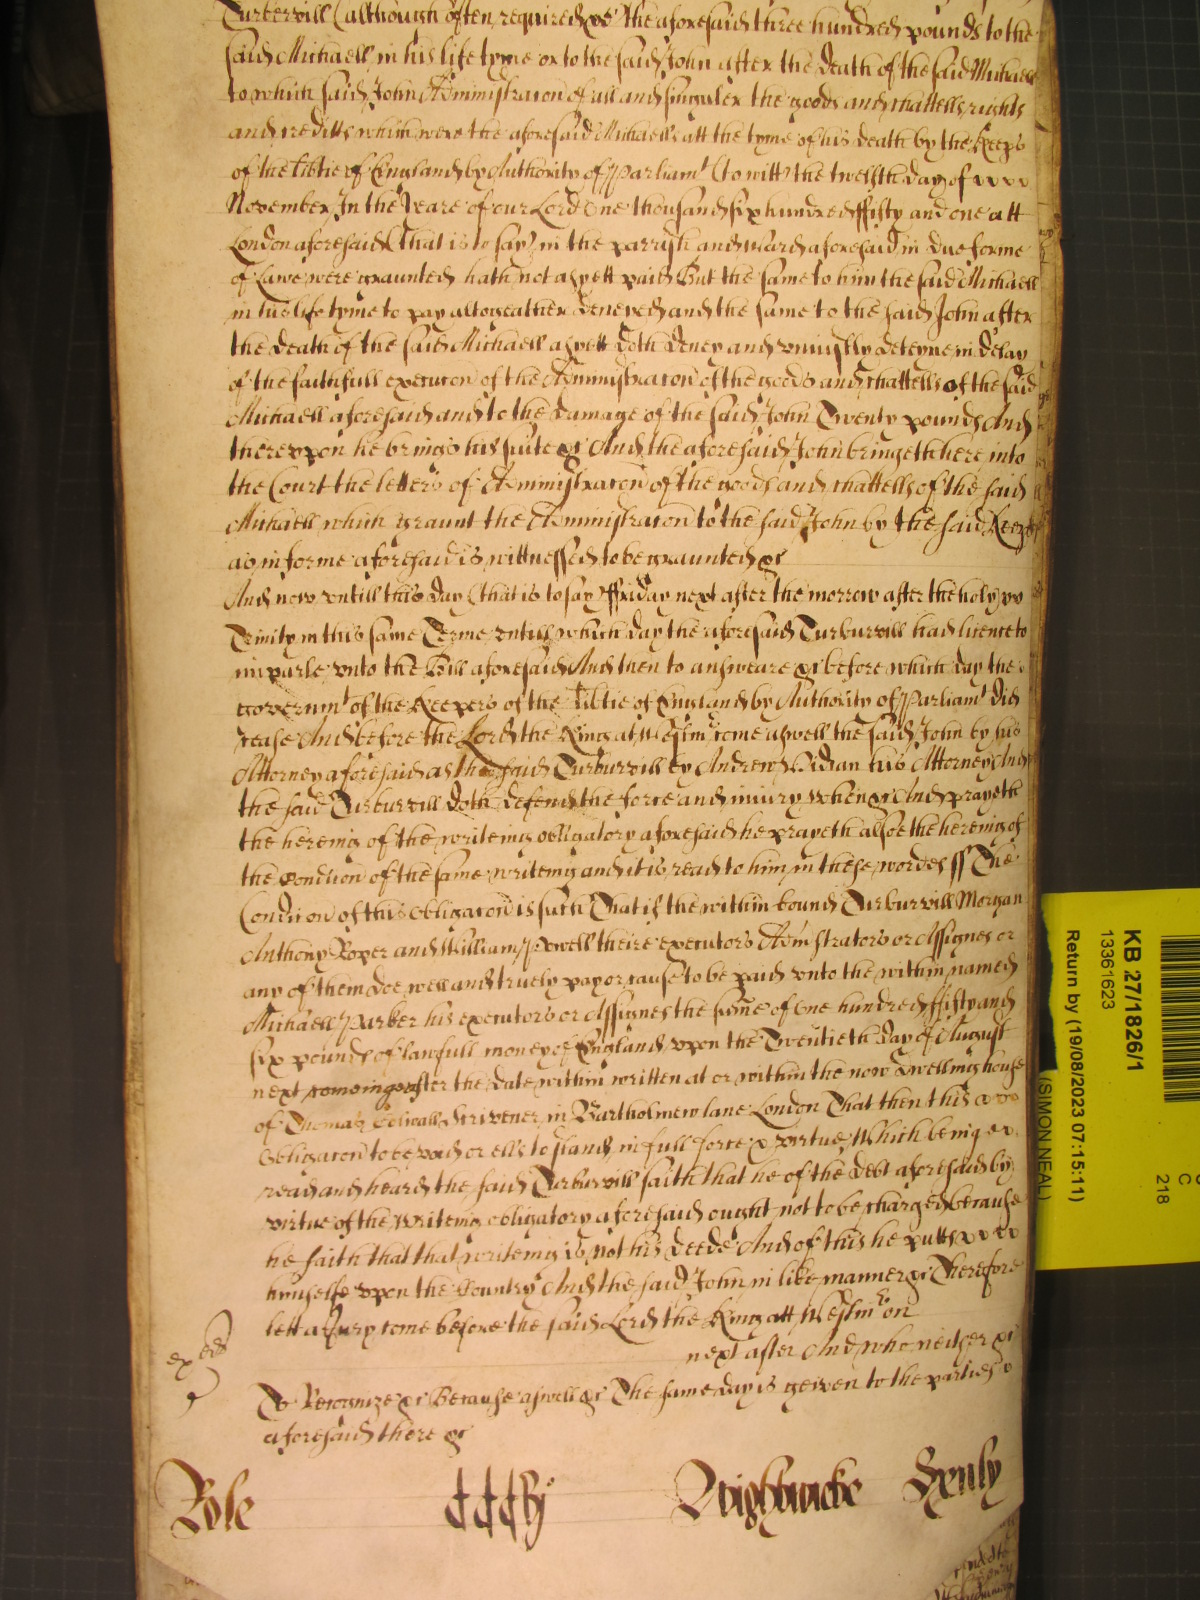 Turbervill (although often required &c) the aforesaid three hundred pounds to the
said Michaell in his life tyme or to the said John after the death of the said Michaell
to which said John Administracon of all and singuler the goods and chattells rights
and creditts which were the aforesaid Michaells att the tyme of his death by the Keeps
of the Libtie of England by Authority of Parliamt (to witt) the twelfth day of
November In the Yeare of our Lord One thousand six hundred ffifty and one att
London aforesaid (that is to say) in the parrish and ward aforesaid in due forme
of Lawe were graunted hath not as yett paid But the same to him the said Michaell
in his life tyme to pay altogeather denyed and the same to the said John after
the death of the said Michaell as yett doth deney and uniustly deteyne in delay
of the faithfull execucon of the Administracon of the goods and chattells of the said
Michaell aforesaid and to the damage of the said John Twenty pounds And
thereupon he brings his suite &c And the aforesaid John bringeth here into
the Court the letters of Administracon of the goods and chattells of the said
Michaell which graunt the Administracon to the said John by the said Keeps
as in forme aforesaid is wittnessed to be graunted &c
And now untill this day (that is to say) ffriday next after the morrow after the holy
Trinity in this same Terme untill which day the aforesaid Turburvill had licence to
imparle unto the Bill aforesaid And then to answeare &c before which day the
governmt of the Keepers of the Libtie of England by Authority of Parliamt did
cease And before the Lord the King at Westm come aswell the said John by his
Attorney aforesaid as the said Turburvill by Andrew Vidian his Attorney And
the said Turburvill doth defend the force and iniury when &c And prayeth
the hereing of the writeing obligatory aforesaid he prayeth alsoe the hereing of
the condicon of the same writeing and it is read to him in these wordes ss The
Condicon of this obligacon is such That if the within bound Turburvill Morgan
Anthony Roper and William Powell theire executors Admstrators or Assignes or
any of them doe well and truely pay or cause to be paid unto the within named
Michaell Parker his executors or Assignes the sume of One hundred ffifty and
six pounds of lawfull money of England upon the Twentieth day of August
next comeing after the date within written at or within the now dwelling house
of Thomas Scrivener in Bartholmew lane London That then this
Obligacon to be void or ells to stand in full force & virtue Which being
read and heard the said Turburvill saith that he of the debt aforesaid by
virtue of the writeing obligatory aforesaid ought not to be charged because
he saith that that writeing is not his deede And of this he putts
himselfe upon the Country And the said John in like manner &c Therefore
lett a Jury come before the said Lord the King att Westm on
next after And who neither &c
To Recognize &c Because aswell &c The same day is geiven to the parties
aforesaid there &c
Role
Wightwicke
KB 27/1826/1
13361623
Return by (19/08/2023 07:15:11)
(SIMON NEAL)
C
218